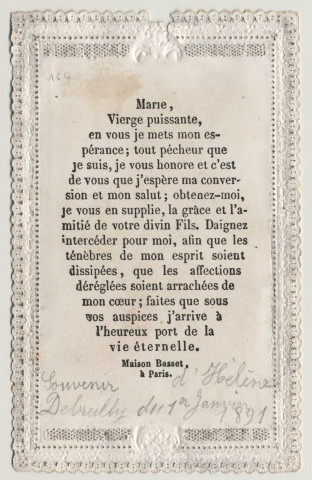 164
Marie,
Vierge puissante,
en vous je mets mon es-
pérance; tout pécheur que
je suis, je vous honore et c'est
de vous que j'espère ma conver-
sion et mon salut; obtenez-moi,
je vous en supplie, la grâce et l'a-
mitié de votre divin Fils. Daignez
intercéder pour moi, afin que les
ténèbres de mon esprit soient
dissipées, que les affections
déréglées soient arrachées de
mon cœur; faites que sous
vos auspices j'arrive à
l'heureux port de la
vie éternelle.
Maison Basset,
à Paris.
Souvenir d'Hélène
du 1er Janvier 891